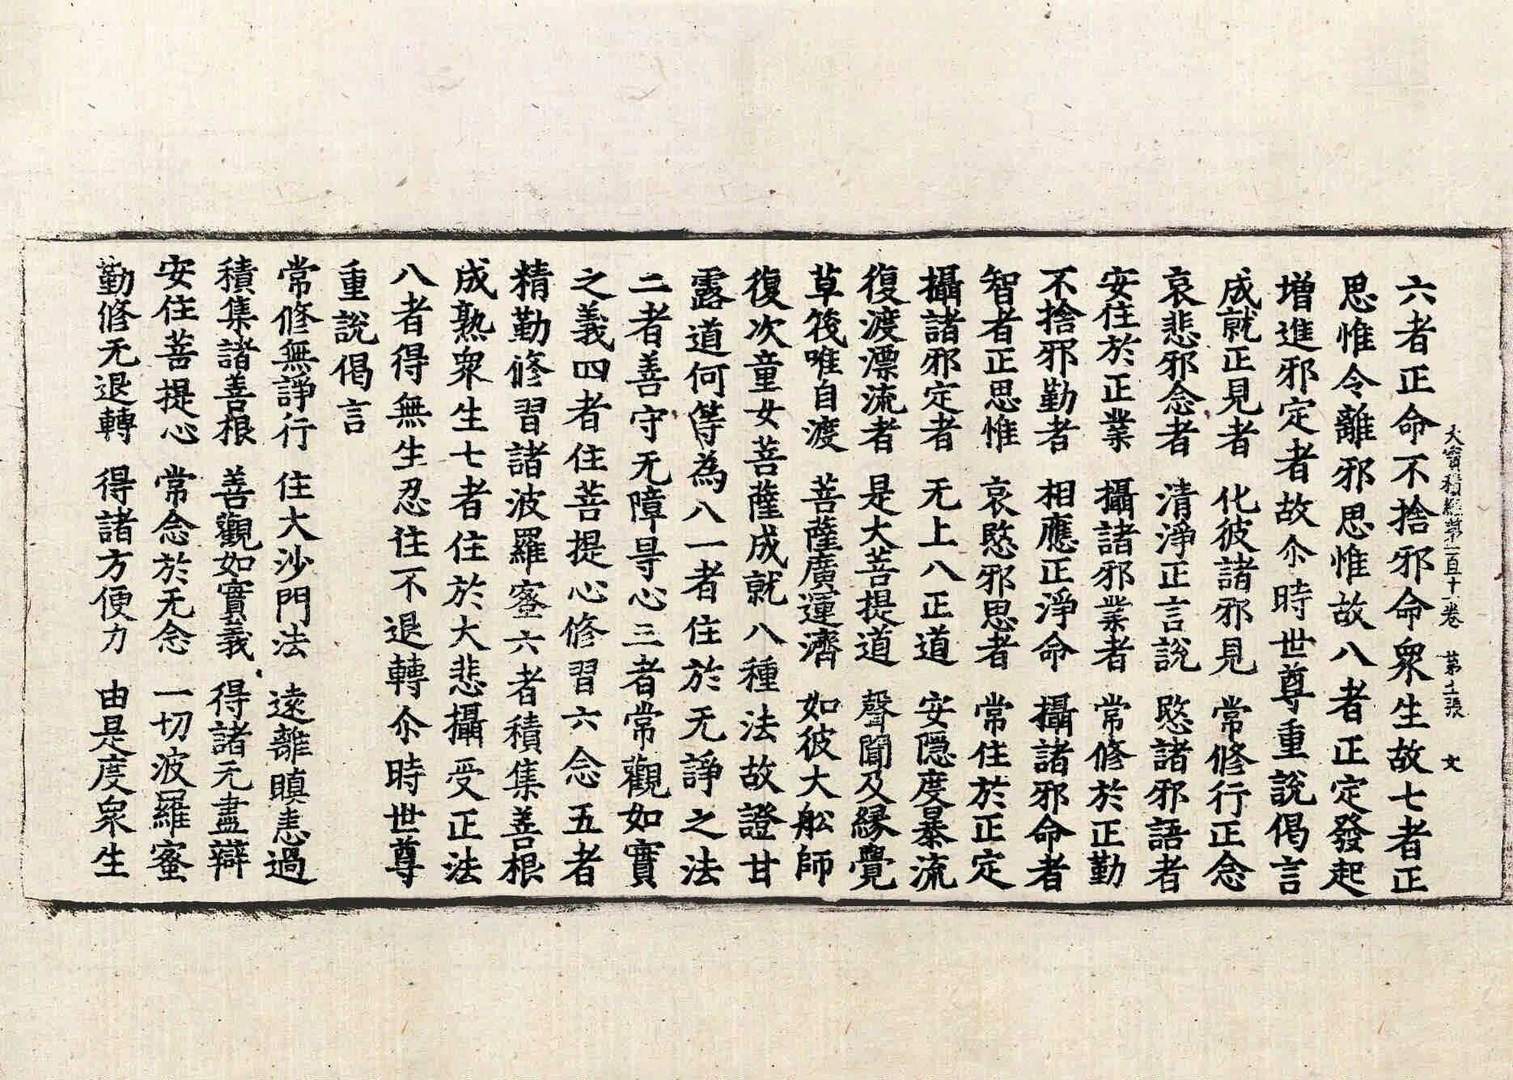 大寶積經第一百十一卷 第十張 文
六者正命不捨邪命衆生故七者正
思惟令離邪思惟故八者正定發起
增進邪定者故尒時世尊重說偈言
成就正見者 化彼諸邪見 常修行正念
哀悲邪念者 清淨正言說 愍諸邪語者
安住於正業 攝諸邪業者 常修於正勤
不捨邪勤者 相應正淨命 攝諸邪命者
智者正思惟 哀愍邪思者 常住於正定
攝諸邪定者 无上八正道 安隱度暴流
復渡漂流者 是大菩提道 聲聞及緣覺
草筏唯自渡 菩薩廣運濟 如彼大舩師
復次童女菩薩成就八種法故證甘
露道何等為八一者住於无諍之法
二者善守无障㝵心三者常觀如實
之義四者住菩提心修習六念五者
精勤修習諸波羅蜜六者積集善根
成熟衆生七者住於大悲攝受正法
八者得無生忍住不退轉尒時世尊
重說偈言
常修無諍行 住大沙門法 遠離瞋恚過
積集諸善根 善觀如實義 得諸无盡辯
安住菩提心 常念於无念 一切波羅蜜
勤修无退轉 得諸方便力 由是度衆生